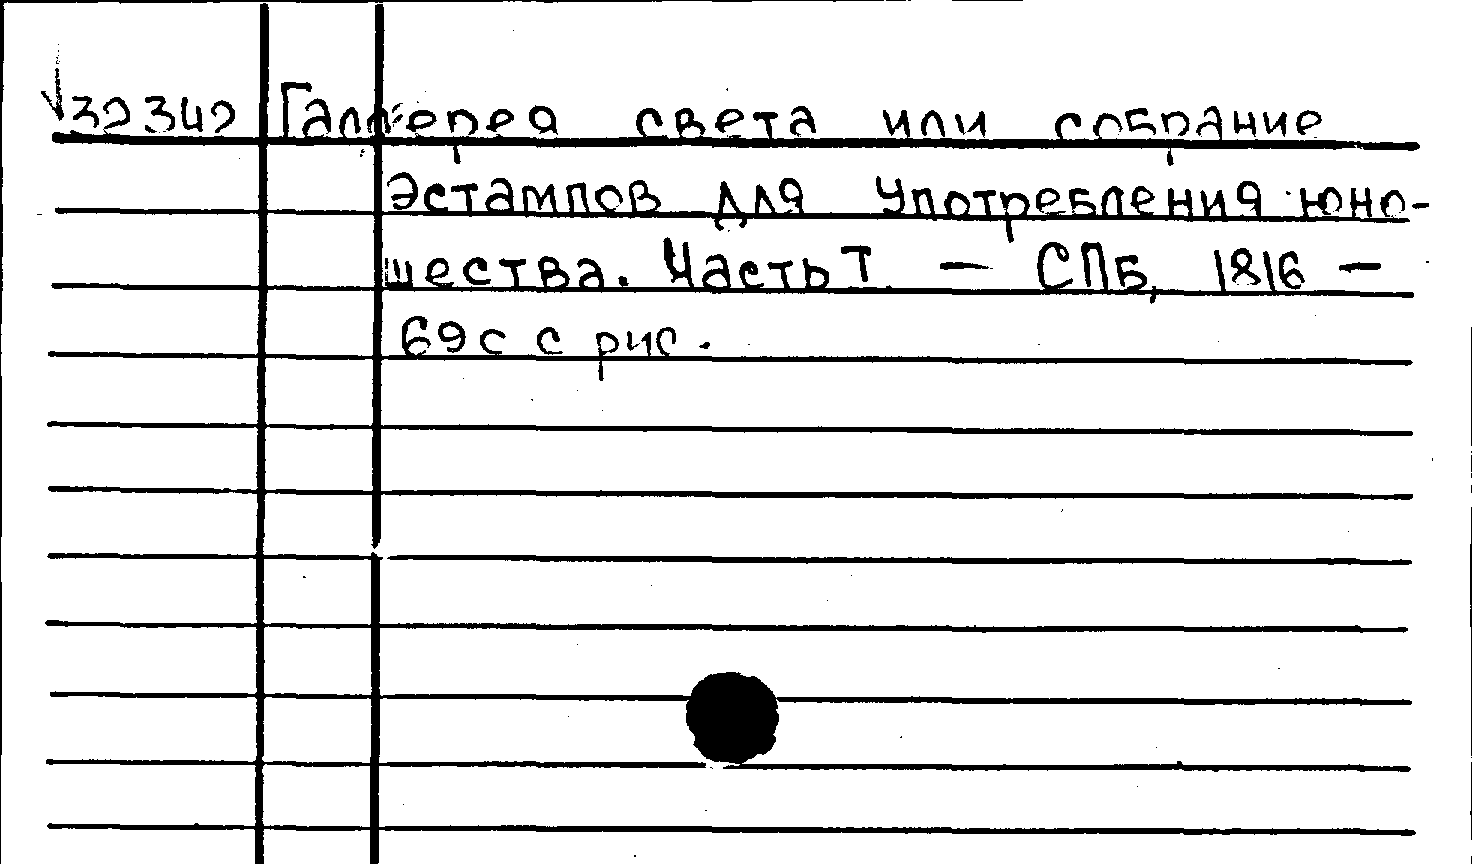 32342 Галлерея света или собрание
эстампов для употребления юно-
шества. Часть I. — СПБ, 1816 —
69с с рис.